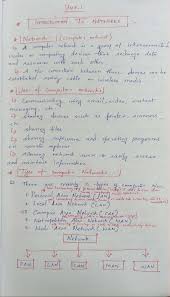 Unit-1
* Introduction To Networks *
* Network (Computer network)
A computer network is a group of interconnected
or computing devices that exchange data
and resources with each other.
A the connection between these devices can be
established using cable or wireless media
* Uses of Computer networks
Communicating using email, video, instant
messaging, etc.
sharing devices such as printers, scanners
etc.
sharing files
sharing software and operating programs
on remote systems
Allowing network users to easily access
and maintain information
* Types of Computer Networks
There are mainly 5 types of Computer
Personal Area Network (PAN)
Local Area Network (LAN)
Campus Area Network (CAN)
Metropolitan Area Network (MAN)
Wide Area Network (WAN)
Network
PAN LAN CAN MAN WAN